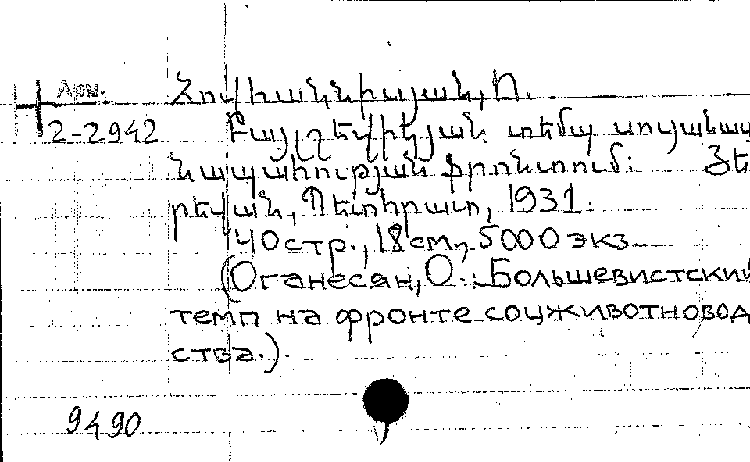 Арм.
Հովհաննիսյան, Օ.
2-2942 Բայլշևիկյան տեմպ սոցանաս
նապահության ֆրոնտում: Յե
րևան, Պետհրատ, 1931.
40 стр., 18 см., 5000 экз
(Оганесян, О. Большевистский
темп на фронте соцживотновод
ства.).
9490